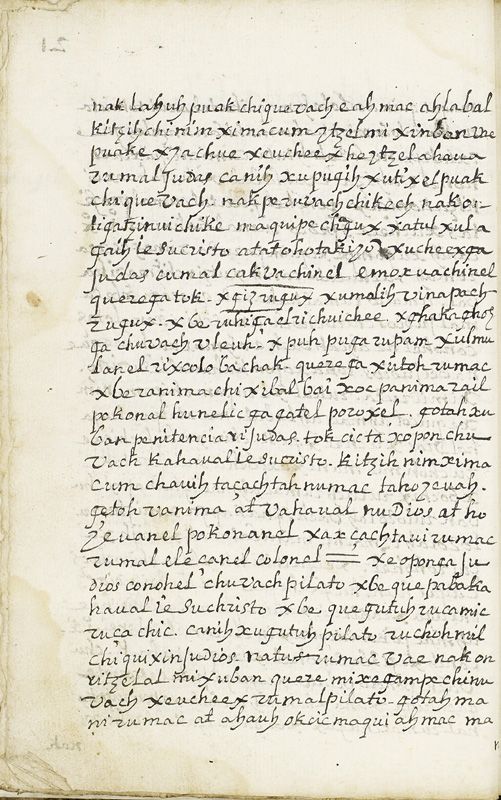 nak lahuh puak chique vach e ah mac ah labal
kitzih chi nim ximacum ytzel mi xinban vae
puak e xyachue xeucheex he ytzel ahaua
rumal Judas canih xupugih xutixel puak
chique vach. nak pe ruvach chikech nak or-
ligatzinuichike maquipe chgux xatul xula
gaih Ie sucristo atat ohotakizo xucheexga
Judas cumal cakvachinel emoxvachinel
querega tok. xgiz rugux xumalih vinapach
rugux. xbe ruhiga elri chuichee. xghakaghoz
ga chuvach vleuh. x puh puga rupam xulmu
lanel rixcolobachak. querega xutoh rumac
xbe ranima chi xibalbai xoc panima rail
pokonal hunelic ga gatel poroxel. gotah xu
ban penitencia ri Judas. tok cicta xopon chu
vach kahaual Iesucristo. kitzih nim xima
cum chauih tacachtah numac tahozeuah.
getoh vanima at vahaual nu Dios at ho
zeuanel pokonanel xax cachtaui rumac
rumal ele canel colonel = xeoponga Ju
dios conohel chuvach pilato xbe que pabaka
haual ie suchristo xbe quegutuh rucamic
rucachic. canih xugutuh pilato ruchohmil
chiquixin Judios. natus rumac vae nak on
ritzelal mi xuban quere mixegampe chinu
vach xeucheex rumal pilato. gotah ma
ni rumac at ahauh okcic maqui ah mac ma